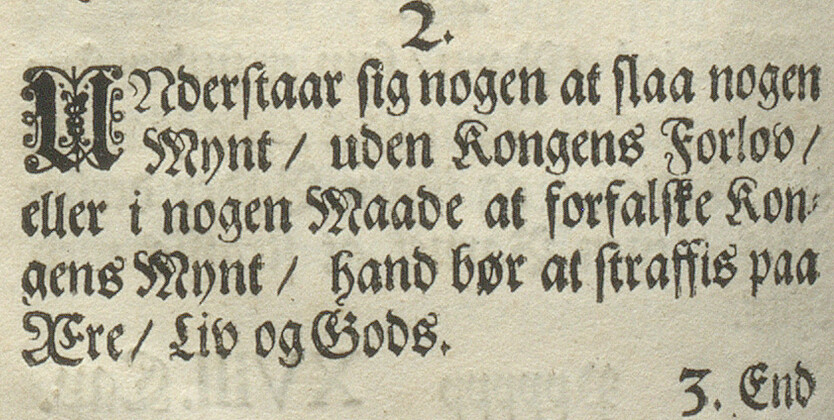 2.
UNderstaar sig nogen at slaa nogen
Mynt / uden Kongens Forlov /
eller i nogen Maade at forfalske Kon-
gens Mynt / hand bør at straffis paa
Ære / Liv og Gods.
3. End